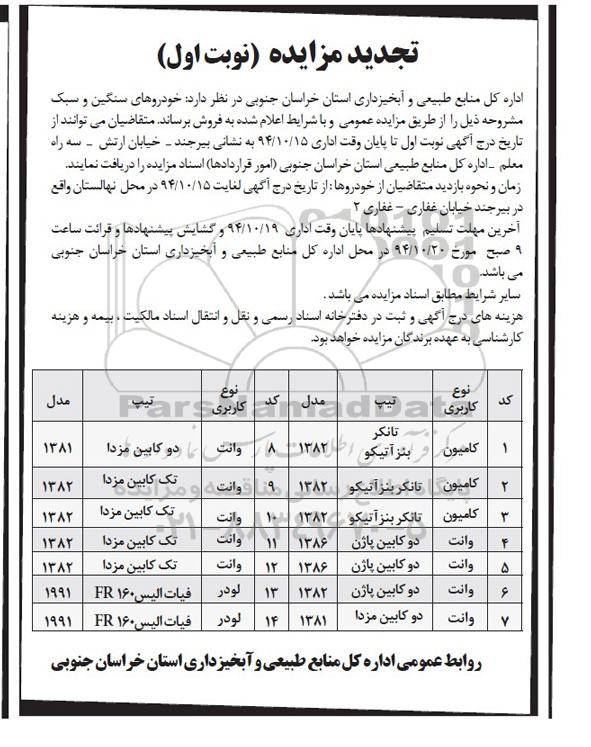 تجدید مزایده (نوبت اول)
اداره کل منابع طبیعی و آبخیزداری استان خراسان جنوبی در نظر دارد: خودروهای سنگین و سبک
مشروحه ذیل را از طریق مزایده عمومی و با شرایط اعلام شده به فروش برساند. متقاضیان می توانند از
تاریخ درج آگهی نوبت اول تا پایان وقت اداری ۹۴/۱۰/۱۵ به نشانی بیرجند - خیابان ارتش - سه راه
معلم -اداره کل منابع طبیعی استان خراسان جنوبی (امور قراردادها) اسناد مزایده را دریافت نمایند.
زمان و نحوه بازدید متقاضیان از خودروها : از تاریخ درج آگهی لغایت ۹۴/۱۰/۱۵ در محل نهالستان واقع
در بیرجند خیابان غفاری – غفاری ۲
آخرین مهلت تسلیم پیشنهادها پایان وقت اداری ۹۴/۱۰/۱۹ و گشایش پیشنهادها و قرائت ساعت
۹ صبح مورخ ۹۴/۱۰/۲۰ در محل اداره کل منابع طبیعی و آبخیزداری استان خراسان جنوبی
می باشد.
سایر شرایط مطابق اسناد مزایده می باشد .
هزینه های درج آگهی و ثبت در دفترخانه اسناد رسمی و نقل و انتقال اسناد مالکیت ، بیمه و هزینه
کارشناسی به عهده برندگان مزایده خواهد بود.
کد نوع کاربری تیپ مدل کد نوع کاربری تیپ مدل
۱ کامیون تانکر بنز آتیکو ۱۳۸۲ ۸ وانت دو کابین مزدا ۱۳۸۱
۲ کامیون تانکر بنز آتیکو ۱۳۸۲ ۹ وانت تک کابین مزدا ۱۳۸۲
۳ کامیون تانکر بنز آتیکو ۱۳۸۲ ۱۰ وانت تک کابین مزدا ۱۳۸۲
۴ وانت دو کابین پاژن ۱۳۸۶ ۱۱ وانت تک کابین مزدا ۱۳۸۲
۵ وانت دو کابین پاژن ۱۳۸۶ ۱۲ وانت تک کابین مزدا ۱۳۸۲
۶ وانت دو کابین پاژن ۱۳۸۲ ۱۳ لودر فیات الیس FR ۱۶۰ ۱۹۹۱
۷ وانت دو کابین مزدا ۱۳۸۱ ۱۴ لودر فیات الیس FR ۱۶۰ ۱۹۹۱
روابط عمومی اداره کل منابع طبیعی و آبخیزداری استان خراسان جنوبی
ParsNamadData
پایگاه اطلاع رسانی مناقصه و مزایده
۰۲۱-۸۸۳۴۹۶۷۰-۵